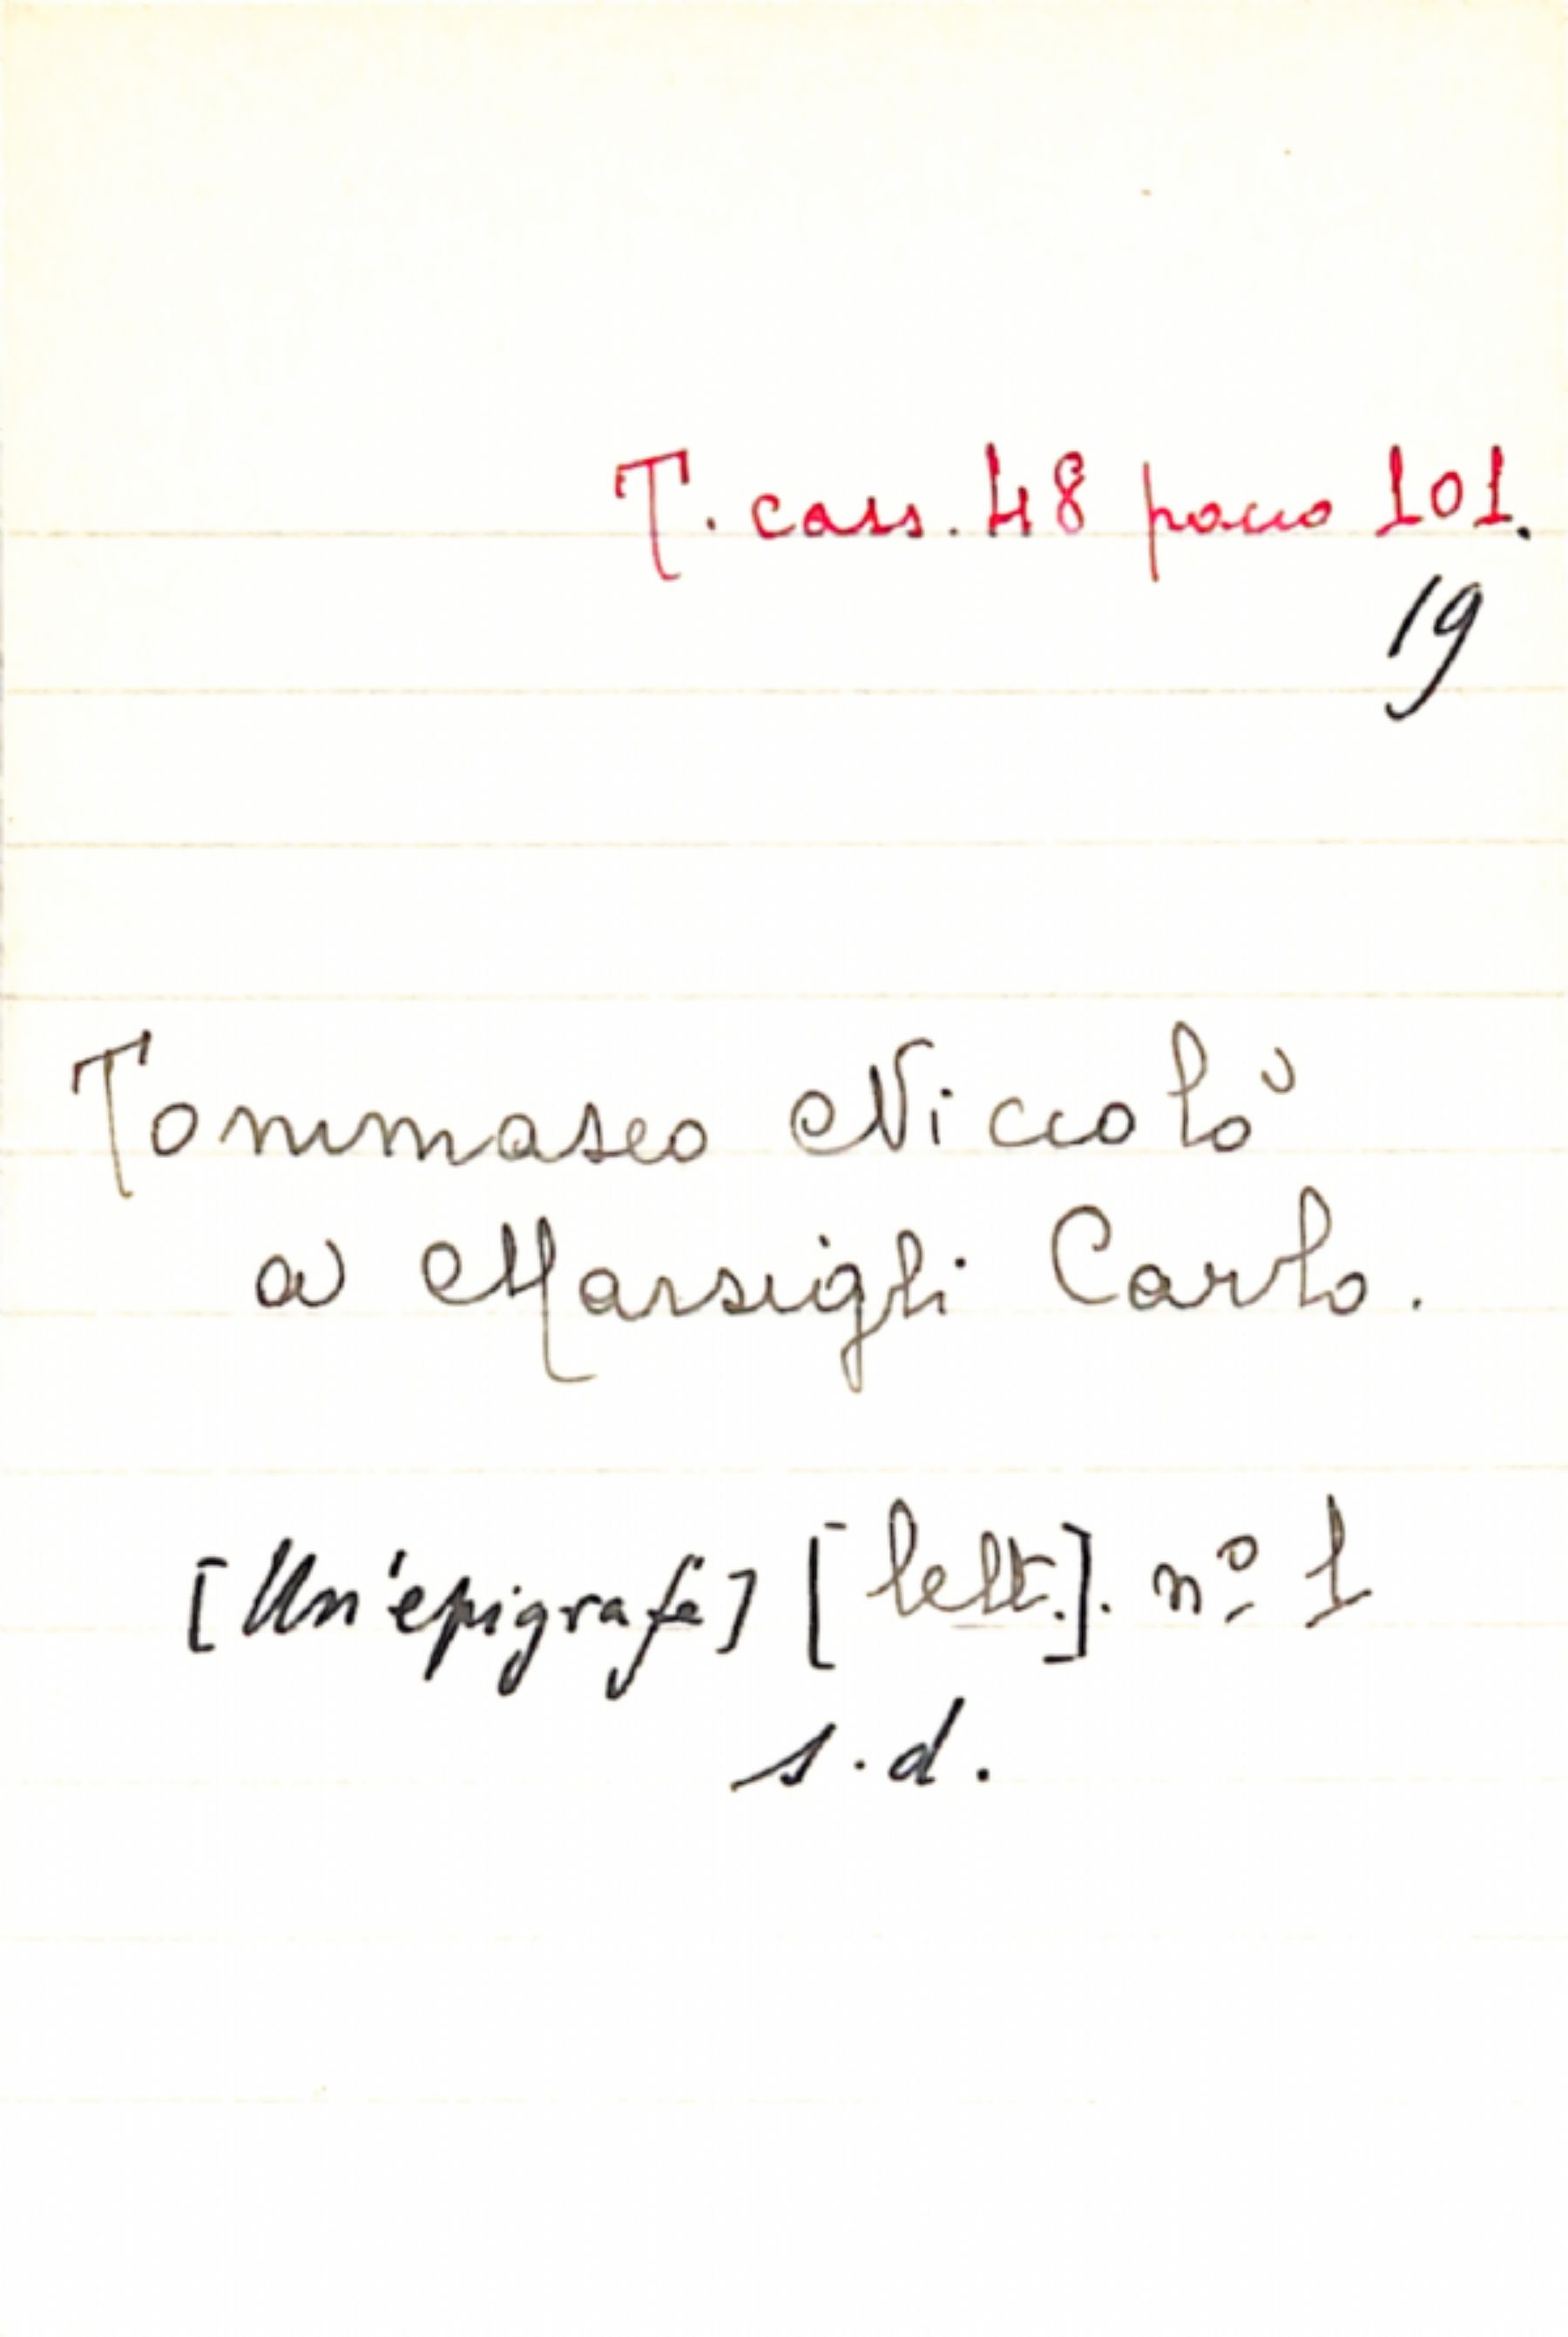 T. cass. 48 pacco 101.
19
Tommaseo Niccolò
a Marsigli Carlo.
[Un'epigrafe] [lett.]. nº 1
s.d.